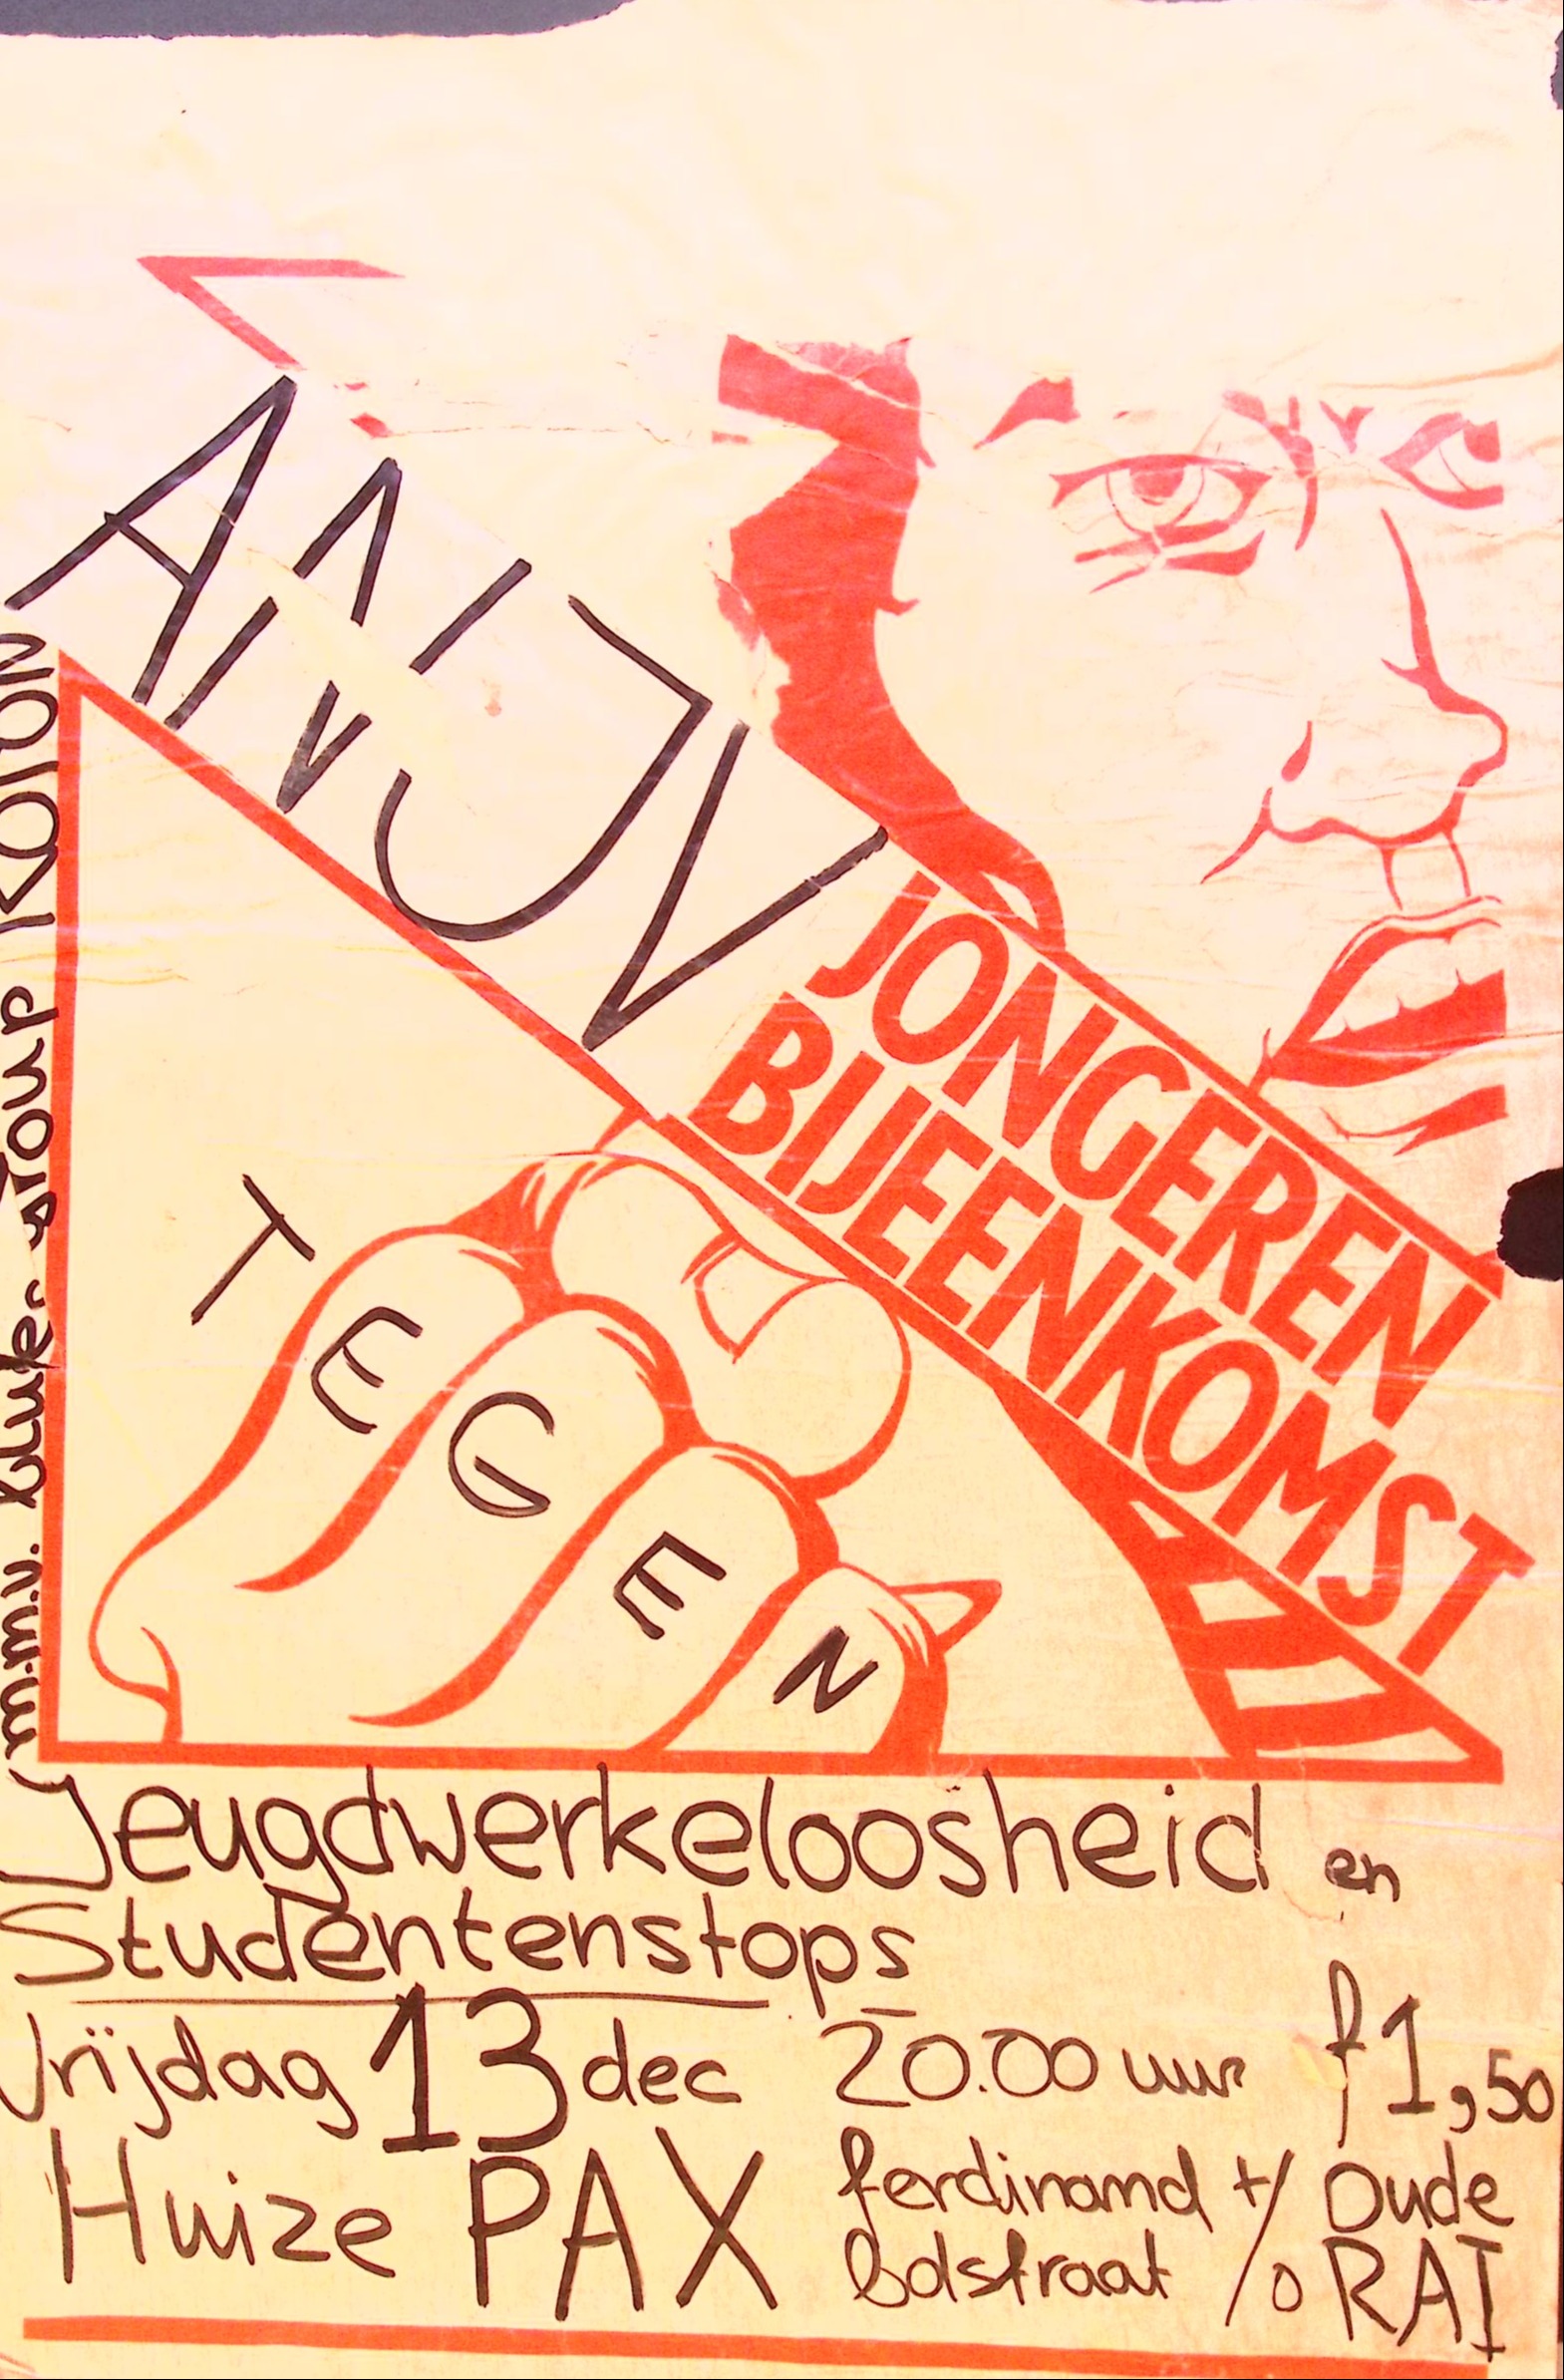 ANJV
JONGEREN
BIJEENKOMST
TEGEN
Jeugdwerkeloosheid en
Studentenstops
Vrijdag 13 dec 20.00 uur f1,50
Huize PAX ferdinand t/o Oude
bolstraat RAI
m.m.v.